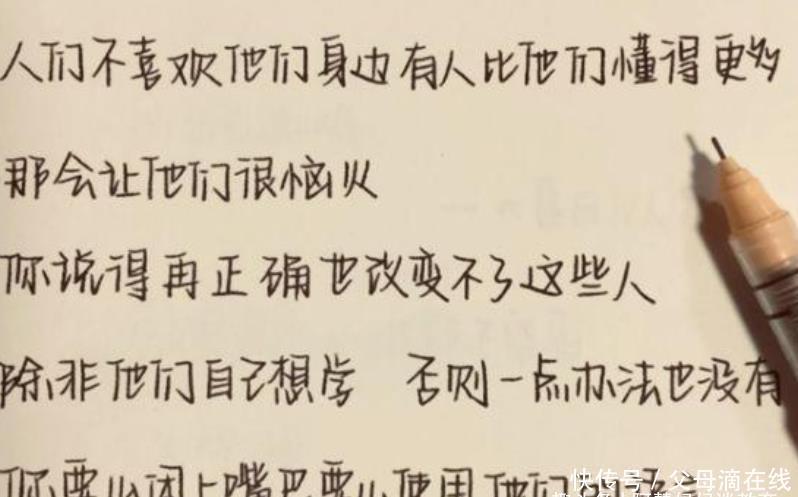 人们不喜欢他们身边有人比他们懂得更多
那会让他们很恼火
你说得再正确也改变不了这些人
除非他们自己想学 否则一点办法也没有
你要么闭上嘴巴要么使用他们
快传号/父母滴在线